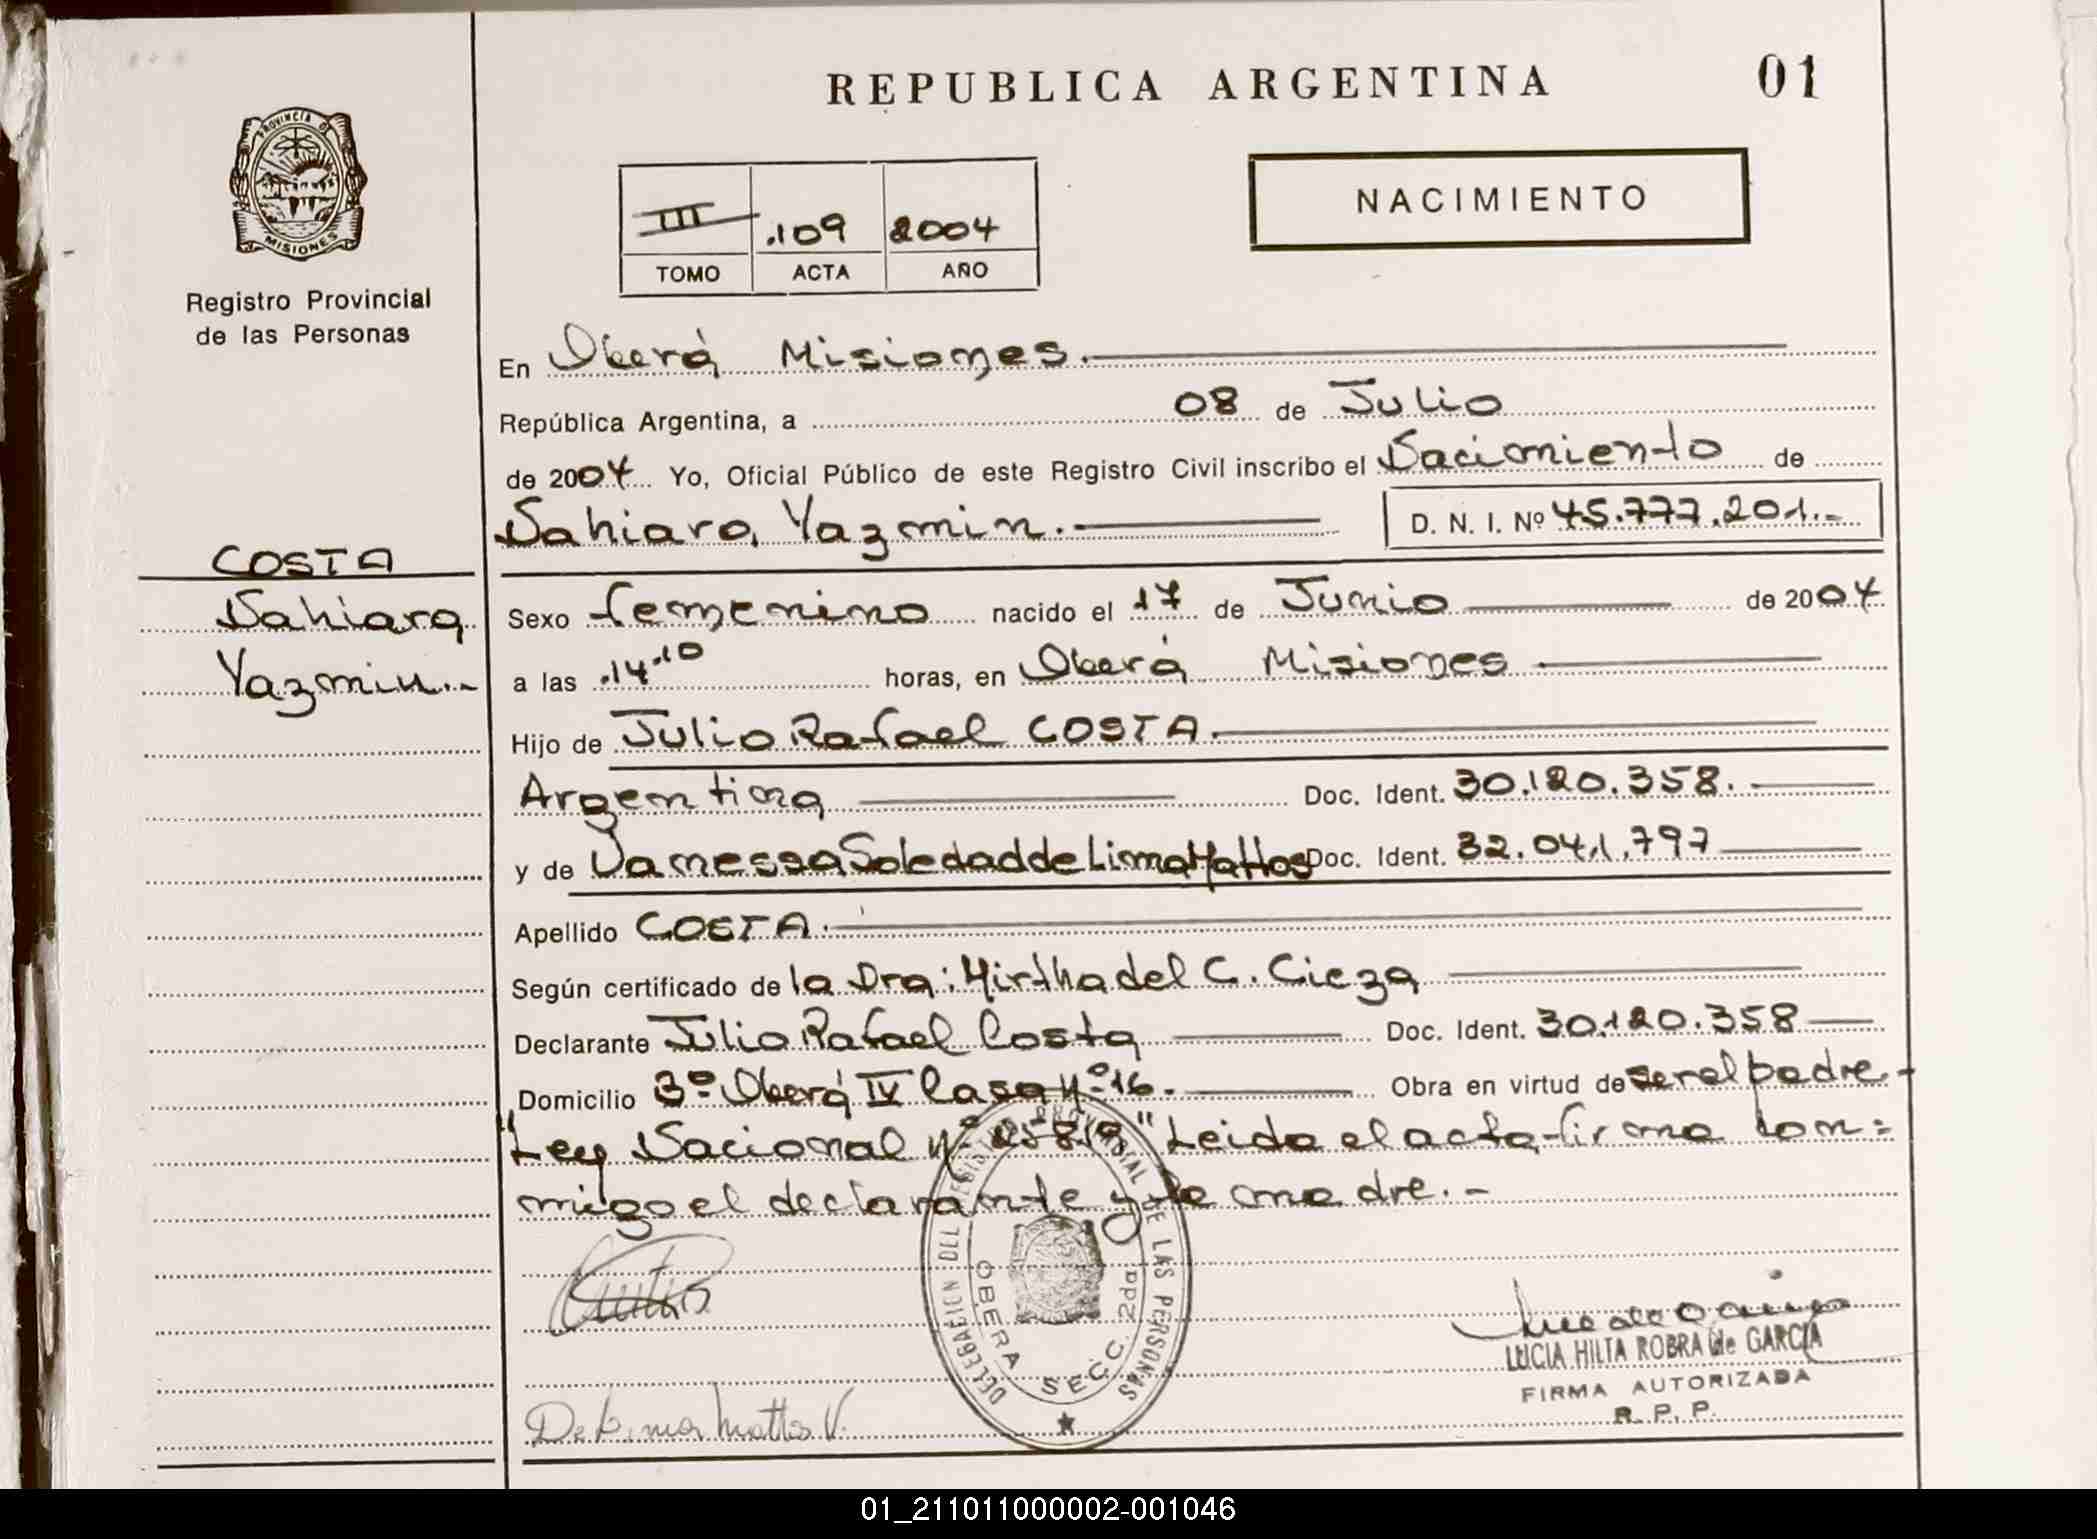 REPUBLICA ARGENTINA
01
PROVINCIA DE
MISIONES
Registro Provincial
de las Personas
III .109 2004
TOMO ACTA AÑO
NACIMIENTO
En Oberá Misiones.
República Argentina, a 08 de Julio
de 2004 Yo, Oficial Público de este Registro Civil inscribo el Nacimiento de
Nahiara, Yazmin. D. N. I. Nº 45.777.201.-
COSTA
Nahiara
Yazmin.-
Sexo femenino nacido el 17 de Junio de 2004
a las .14.10 horas, en Oberá Misiones
Hijo de Julio Rafael COSTA.
Argentina Doc. Ident. 30.120.358.
y de Vanessa Soledad de Lima Mattos Doc. Ident. 32.041.797
Apellido COSTA.
Según certificado de la Dra: Mirtha del C. Cieza
Declarante Julio Rafael Costa Doc. Ident. 30.120.358
Domicilio 3º Oberá IV Casa Nº 16. Obra en virtud de ser el padre.-
"Ley Nacional Nº 25819" Leida el acta firma con=
migo el declarante y la madre.-
DELEGACION DEL REGISTRO PROVINCIAL DE LAS PERSONAS
OBERA SECC. 2da
De Lima Mattos V.
LUCIA HILTA ROBRA de GARCIA
FIRMA AUTORIZADA
R. P. P.
01_211011000002-001046